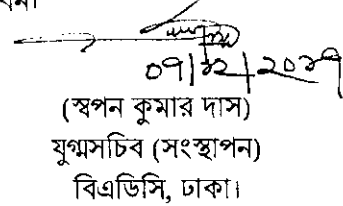 ০৭|১২|২০১৭
(স্বপন কুমার দাস)
যুগ্মসচিব (সংস্থাপন)
বিএডিসি, ঢাকা।